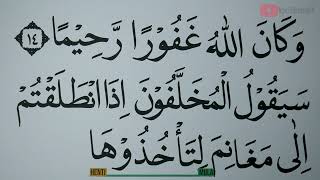 وَكَانَ اللّٰهُ غَفُوْرًا رَّحِيْمًا ۝١٤
سَيَقُوْلُ الْمُخَلَّفُوْنَ اِذَا انْطَلَقْتُمْ
اِلٰى مَغَانِمَ لِتَأْخُذُوْهَا
HENTI MULAI